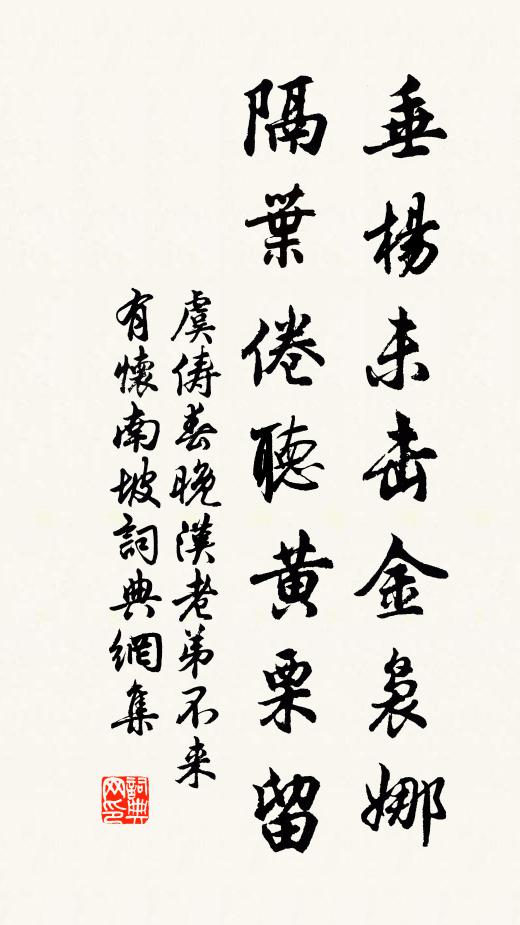 垂楊未击金裊娜
隔葉倦聽黃栗留
虞俦春晚漢老弟不来
有懷南坡詞典網集
詞典網印